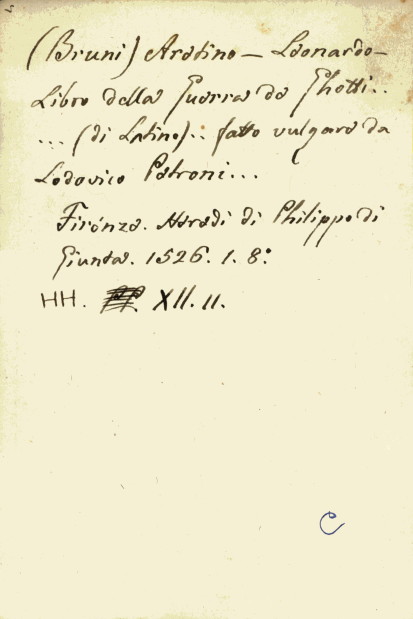 (Bruni) Aretino — Leonardo —
Libro della Guerra de Ghotti..
... (di Latino).. fatto vulgare da
Lodovico Petroni...
Firenze. Heredi di Philippo di
Giunta. 1526. 1. 8:
HH. XII. 11.
C